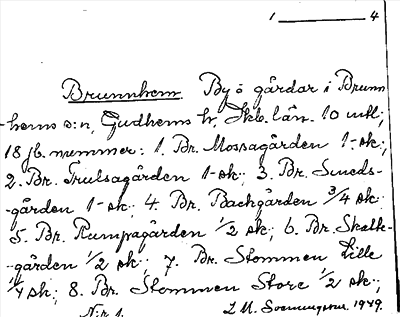 1 4
Brunnhem By o gårdar i Brunn
-hems s:n, Gudhems hr, Skb. län. 10 mtl;
18 jb. nummer: 1. Br. Mossagården 1 sk;
2. Br. Trulsagården 1 sk; 3. Br. Smeds-
-gården 1 sk; 4. Br. Backgården 3/4 sk;
5. Br. Rumpagården 1/2 sk; 6. Br. Skatte-
-gården 1/2 sk; 7. Br. Stommen Lille
1/4 sk; 8. Br. Stommen Store 1/2 sk;
N:r 1. 1949.